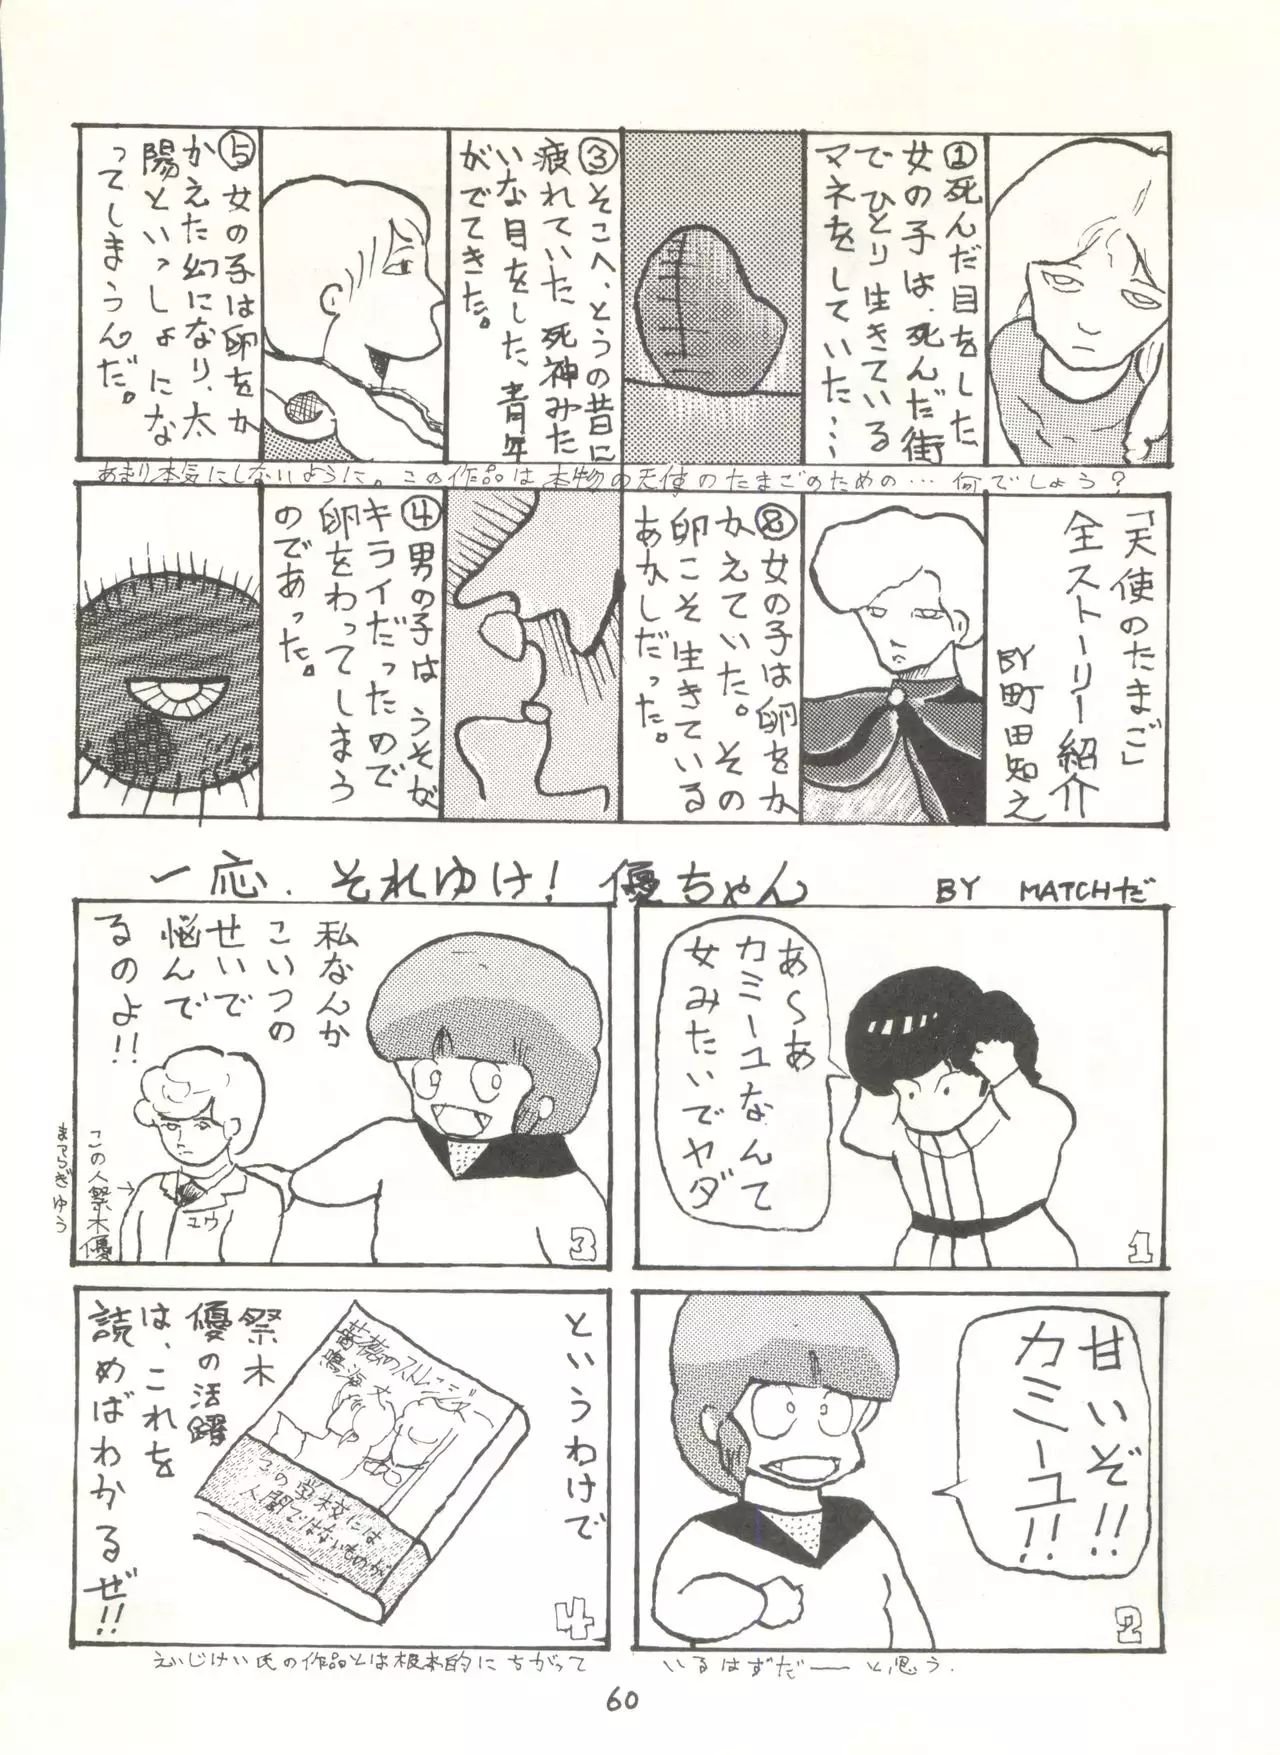 「天使のたまご」
全ストーリー紹介
BY町田知之
①死んだ目をした
女の子は、死んだ街
でひとり生きている
マネをしていた・・・
⑧女の子は卵をか
かえていた。その
卵こそ生きている
あかしだった。
③そこへ、とうの昔に
疲れていた死神みた
いな目をした、青年
がでてきた。
④男の子は、うそが
キライだったので
卵をわってしまう
のであった。
⑤女の子は卵をか
かえた幻になり、太
陽といっしょにな
ってしまうんだ。
あまり本気にしないように。この作品は本物の天使のたまごのための…何でしょう?
一応.それゆけ!優ちゃん
BY MATCHだ
あ〜あ
カミーユなんて
女みたいでヤダ
1
甘いぞ!!
カミーユ!!
2
私なんか
こいつの
せいで
悩んで
るのよ!!
この人祭木優
まつらぎゆう
ユウ
3
というわけで
祭木
優の活躍
は、これを
読めばわかるぜ!!
薔薇のストレンジャー
鳴海丈
この学校には
人間ではないものが
4
えいじけい氏の作品とは根本的にちがって
いるはずだ――と思う.
60